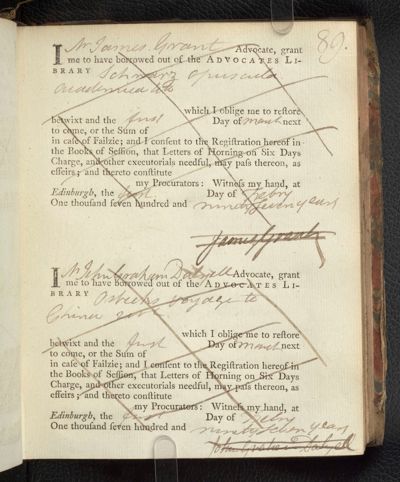 89.
I Mr James Grant Advocate, grant
me to have borrowed out of the ADVOCATES LI-
BRARY Schwarz opuscula
academica
which I oblige me to reſtore
betwixt and the first Day of March next
to come, or the Sum of
in caſe of Failzie; and I conſent to the Regiſtration hereof in
the Books of Seſſion, that Letters of Horning on Six Days
Charge, and other executorials needful, may paſs thereon, as
effeirs; and thereto conſtitute
my Procurators: Witneſs my hand, at
Edinburgh, the first Day of Febry
One thouſand ſeven hundred and ninety seven years
James Grant
I Mr John Graham Dalyell Advocate, grant
me to have borrowed out of the ADVOCATES LI-
BRARY Osbecks voyage to
China
which I oblige me to reſtore
betwixt and the first Day of March next
to come, or the Sum of
in caſe of Failzie; and I conſent to the Regiſtration hereof in
the Books of Seſſion, that Letters of Horning on Six Days
Charge, and other executorials needful, may paſs thereon, as
effeirs; and thereto conſtitute
my Procurators: Witneſs my hand, at
Edinburgh, the first Day of Febry
One thouſand ſeven hundred and ninety seven years
John Graham Dalyell